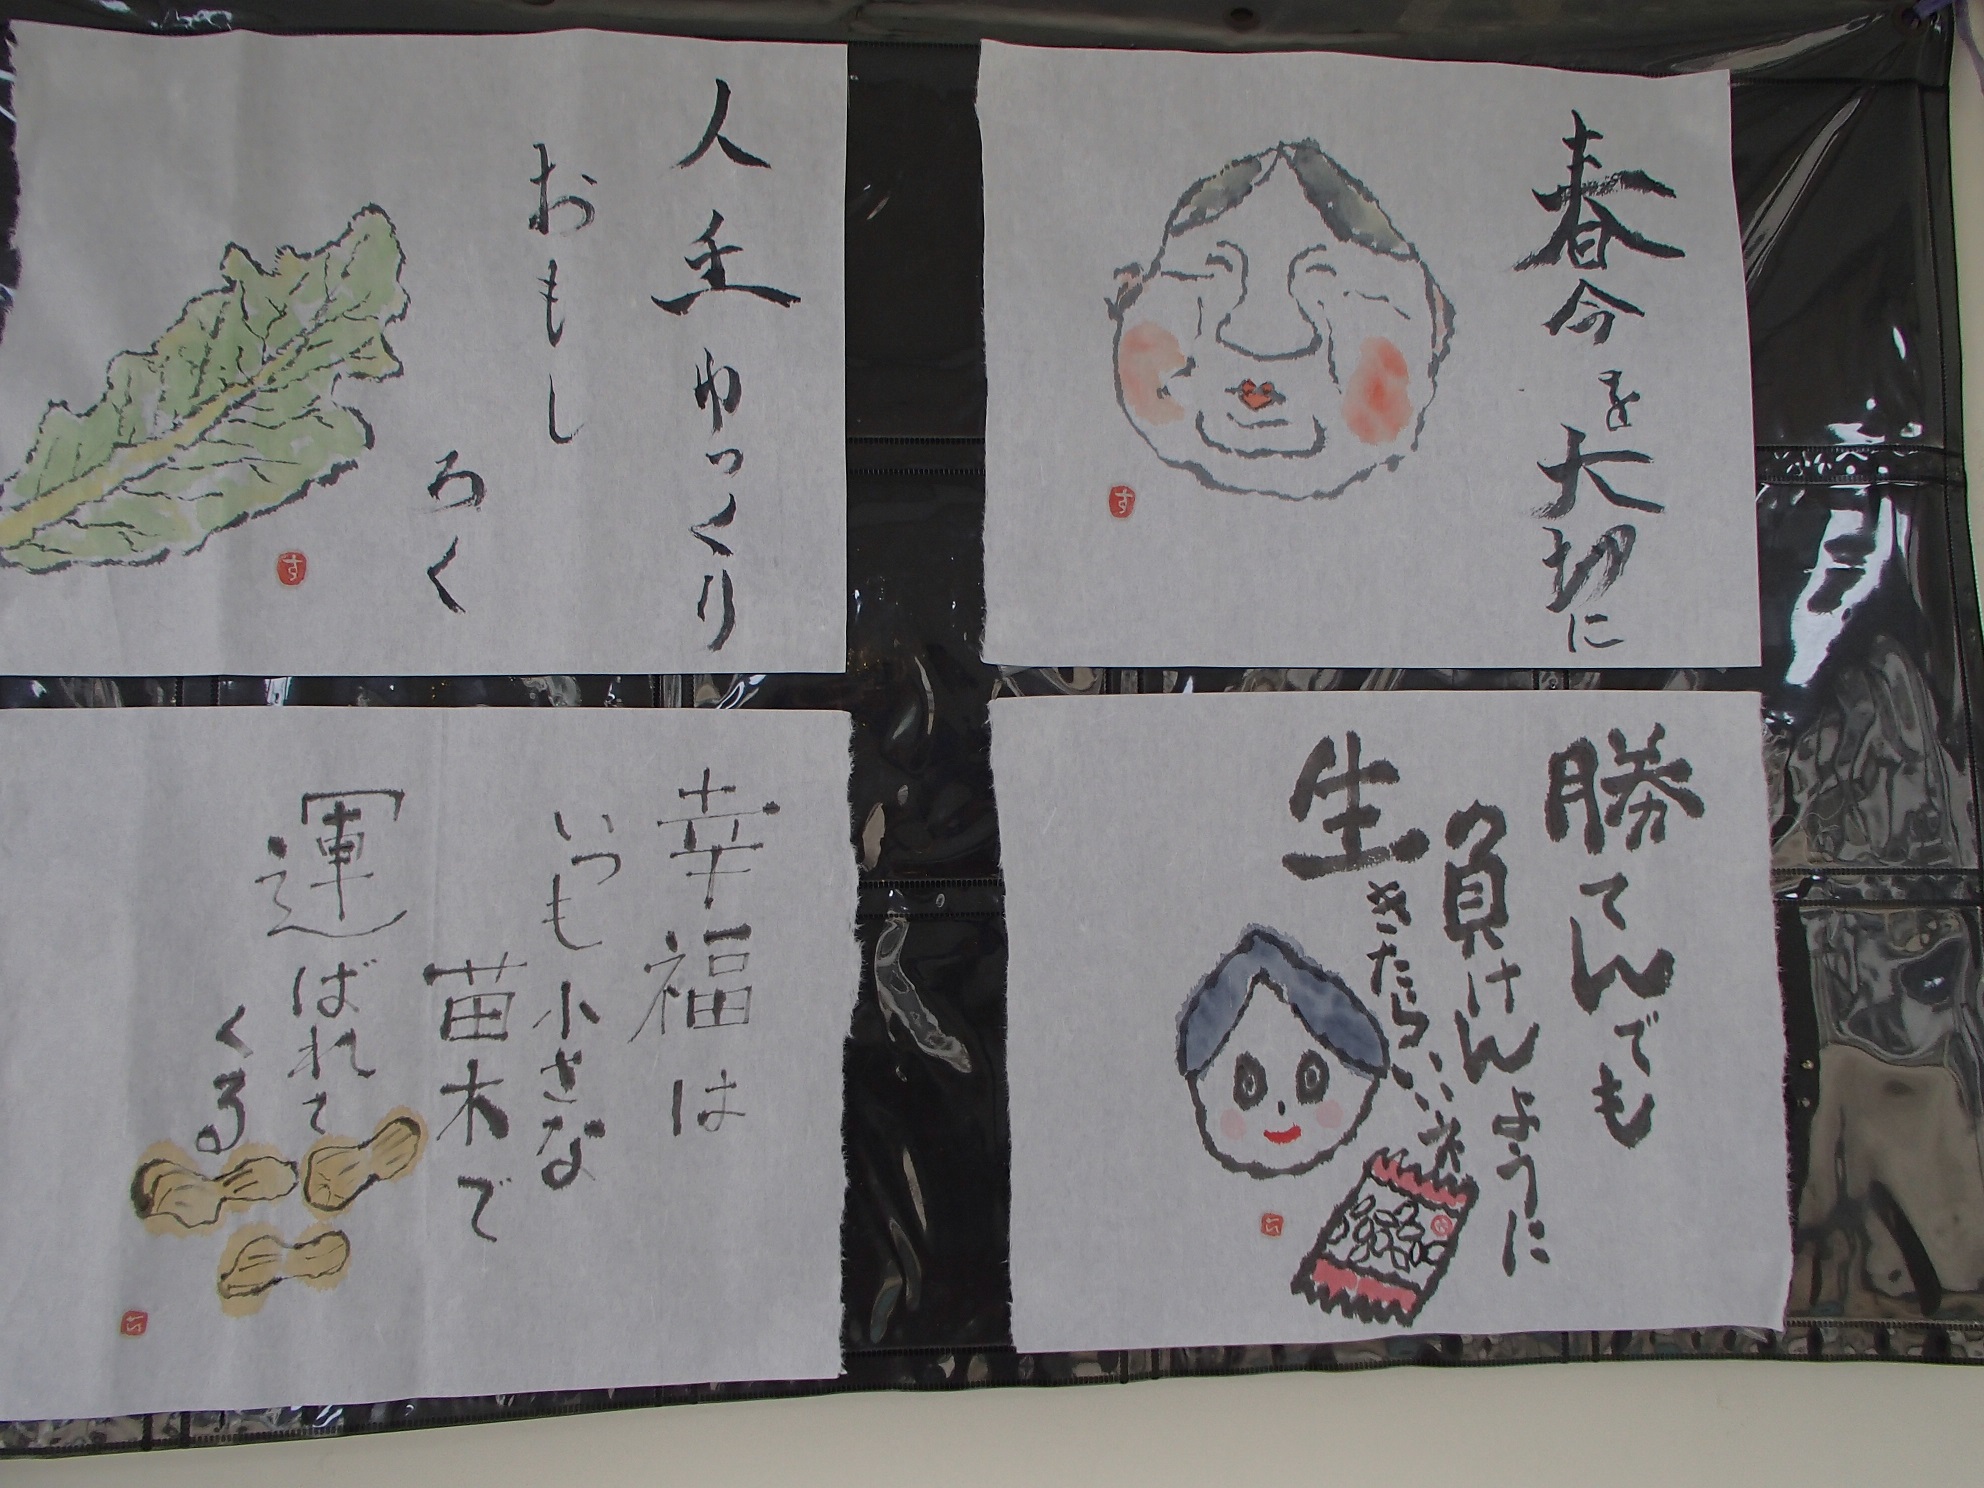 春今を大切に
す
人生ゆっくり
おもし
ろく
す
勝てんでも
負けんように
生きたらいいネ
幸福は
いつも小さな
苗木で
運ばれて
くる